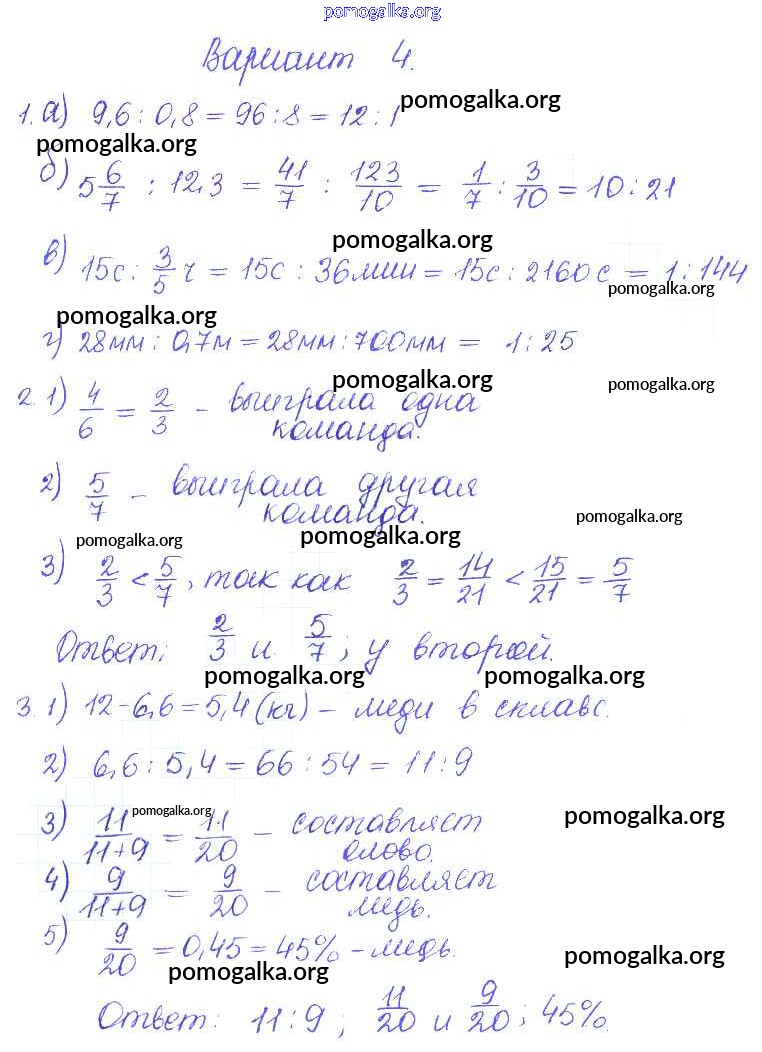 pomogalka.org
Вариант 4.
1. а) 9,6 : 0,8 = 96 : 8 = 12 : 1 pomogalka.org
pomogalka.org
б) 5 6/7 : 12,3 = 41/7 : 123/10 = 1/7 : 3/10 = 10 : 21
pomogalka.org
в) 15с : 3/5 ч = 15с : 36мин = 15с : 2160с = 1 : 144
pomogalka.org
pomogalka.org
г) 28мм : 0,7м = 28мм : 700мм = 1 : 25
pomogalka.org pomogalka.org
2. 1) 4/6 = 2/3 - выиграла одна
команда.
2) 5/7 - выиграла другая
команда.
pomogalka.org
pomogalka.org pomogalka.org
3) 2/3 < 5/7, так как 2/3 = 14/21 < 15/21 = 5/7
Ответ: 2/3 и 5/7; у второй.
pomogalka.org pomogalka.org
3. 1) 12 - 6,6 = 5,4 (кг) - меди в сплаве.
2) 6,6 : 5,4 = 66 : 54 = 11 : 9
pomogalka.org pomogalka.org
3) 11/11+9 = 11/20 - составляет
олово.
4) 9/11+9 = 9/20 - составляет
медь.
5) 9/20 = 0,45 = 45% - медь.
pomogalka.org pomogalka.org
Ответ: 11 : 9; 11/20 и 9/20; 45%